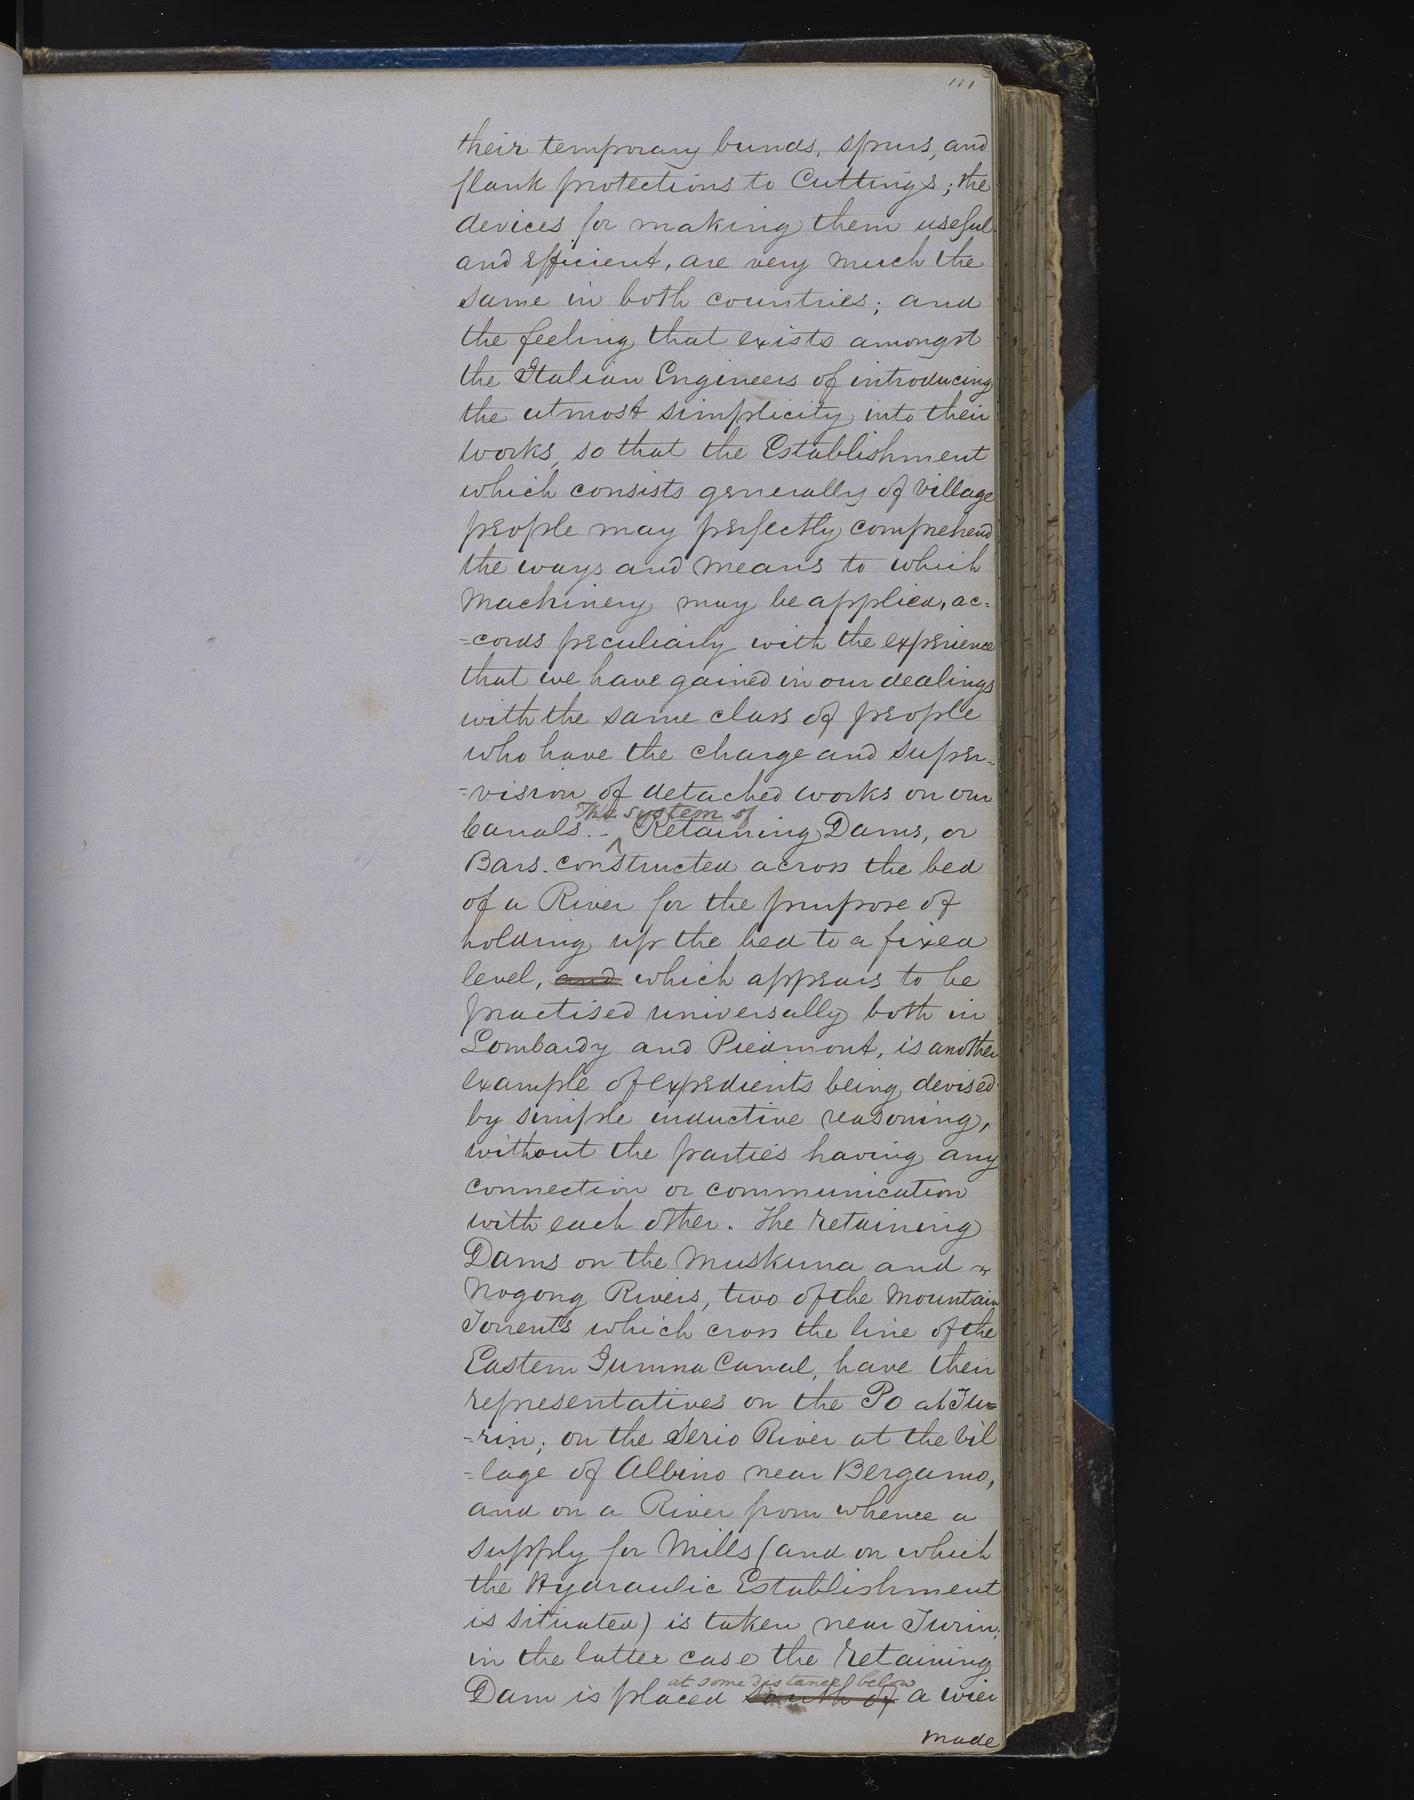 111
their temporary bunds, spurs, and
flank protections to Cuttings; the
devices for making them useful
and efficient, are very much the
same in both countries; and
the feeling that exists amongst
the Italian Engineers of introducing
the utmost simplicity into their
works, so that the Establishment
which consists generally of village
people may perfectly comprehend
the ways and means to which
Machinery may be applied, ac=
=cords peculiarly with the experience
that we have gained in our dealings
with the same class of people
who have the charge and super=
=vision of detached works on our
The system of
Canals. - ^ Retaining Dams, or
Bars. constructed across the bed
of a River for the purpose of
holding up the bed to a fixed
level, and which appears to be
practised universally both in
Lombardy and Piedmont, is another
example of expedients being devised
by simple inductive reasoning,
without the parties having any
connection or communication
with each other. The retaining
Dams on the Muskurra and
Nogong Rivers, two of the Mountain
Torrents which cross the line of the
Eastern Jumna Canal, have their
representatives on the Po at Tu=
=rin; on the Serio River at the Vil
=lage of Albino near Bergamo,
and on a River from whence a
supply for Mills (and on which
the Hydraulic Establishment
is situated) is taken near Turin;
in the latter case the retaining
at some distance below
Dam is placed south of a wier
made